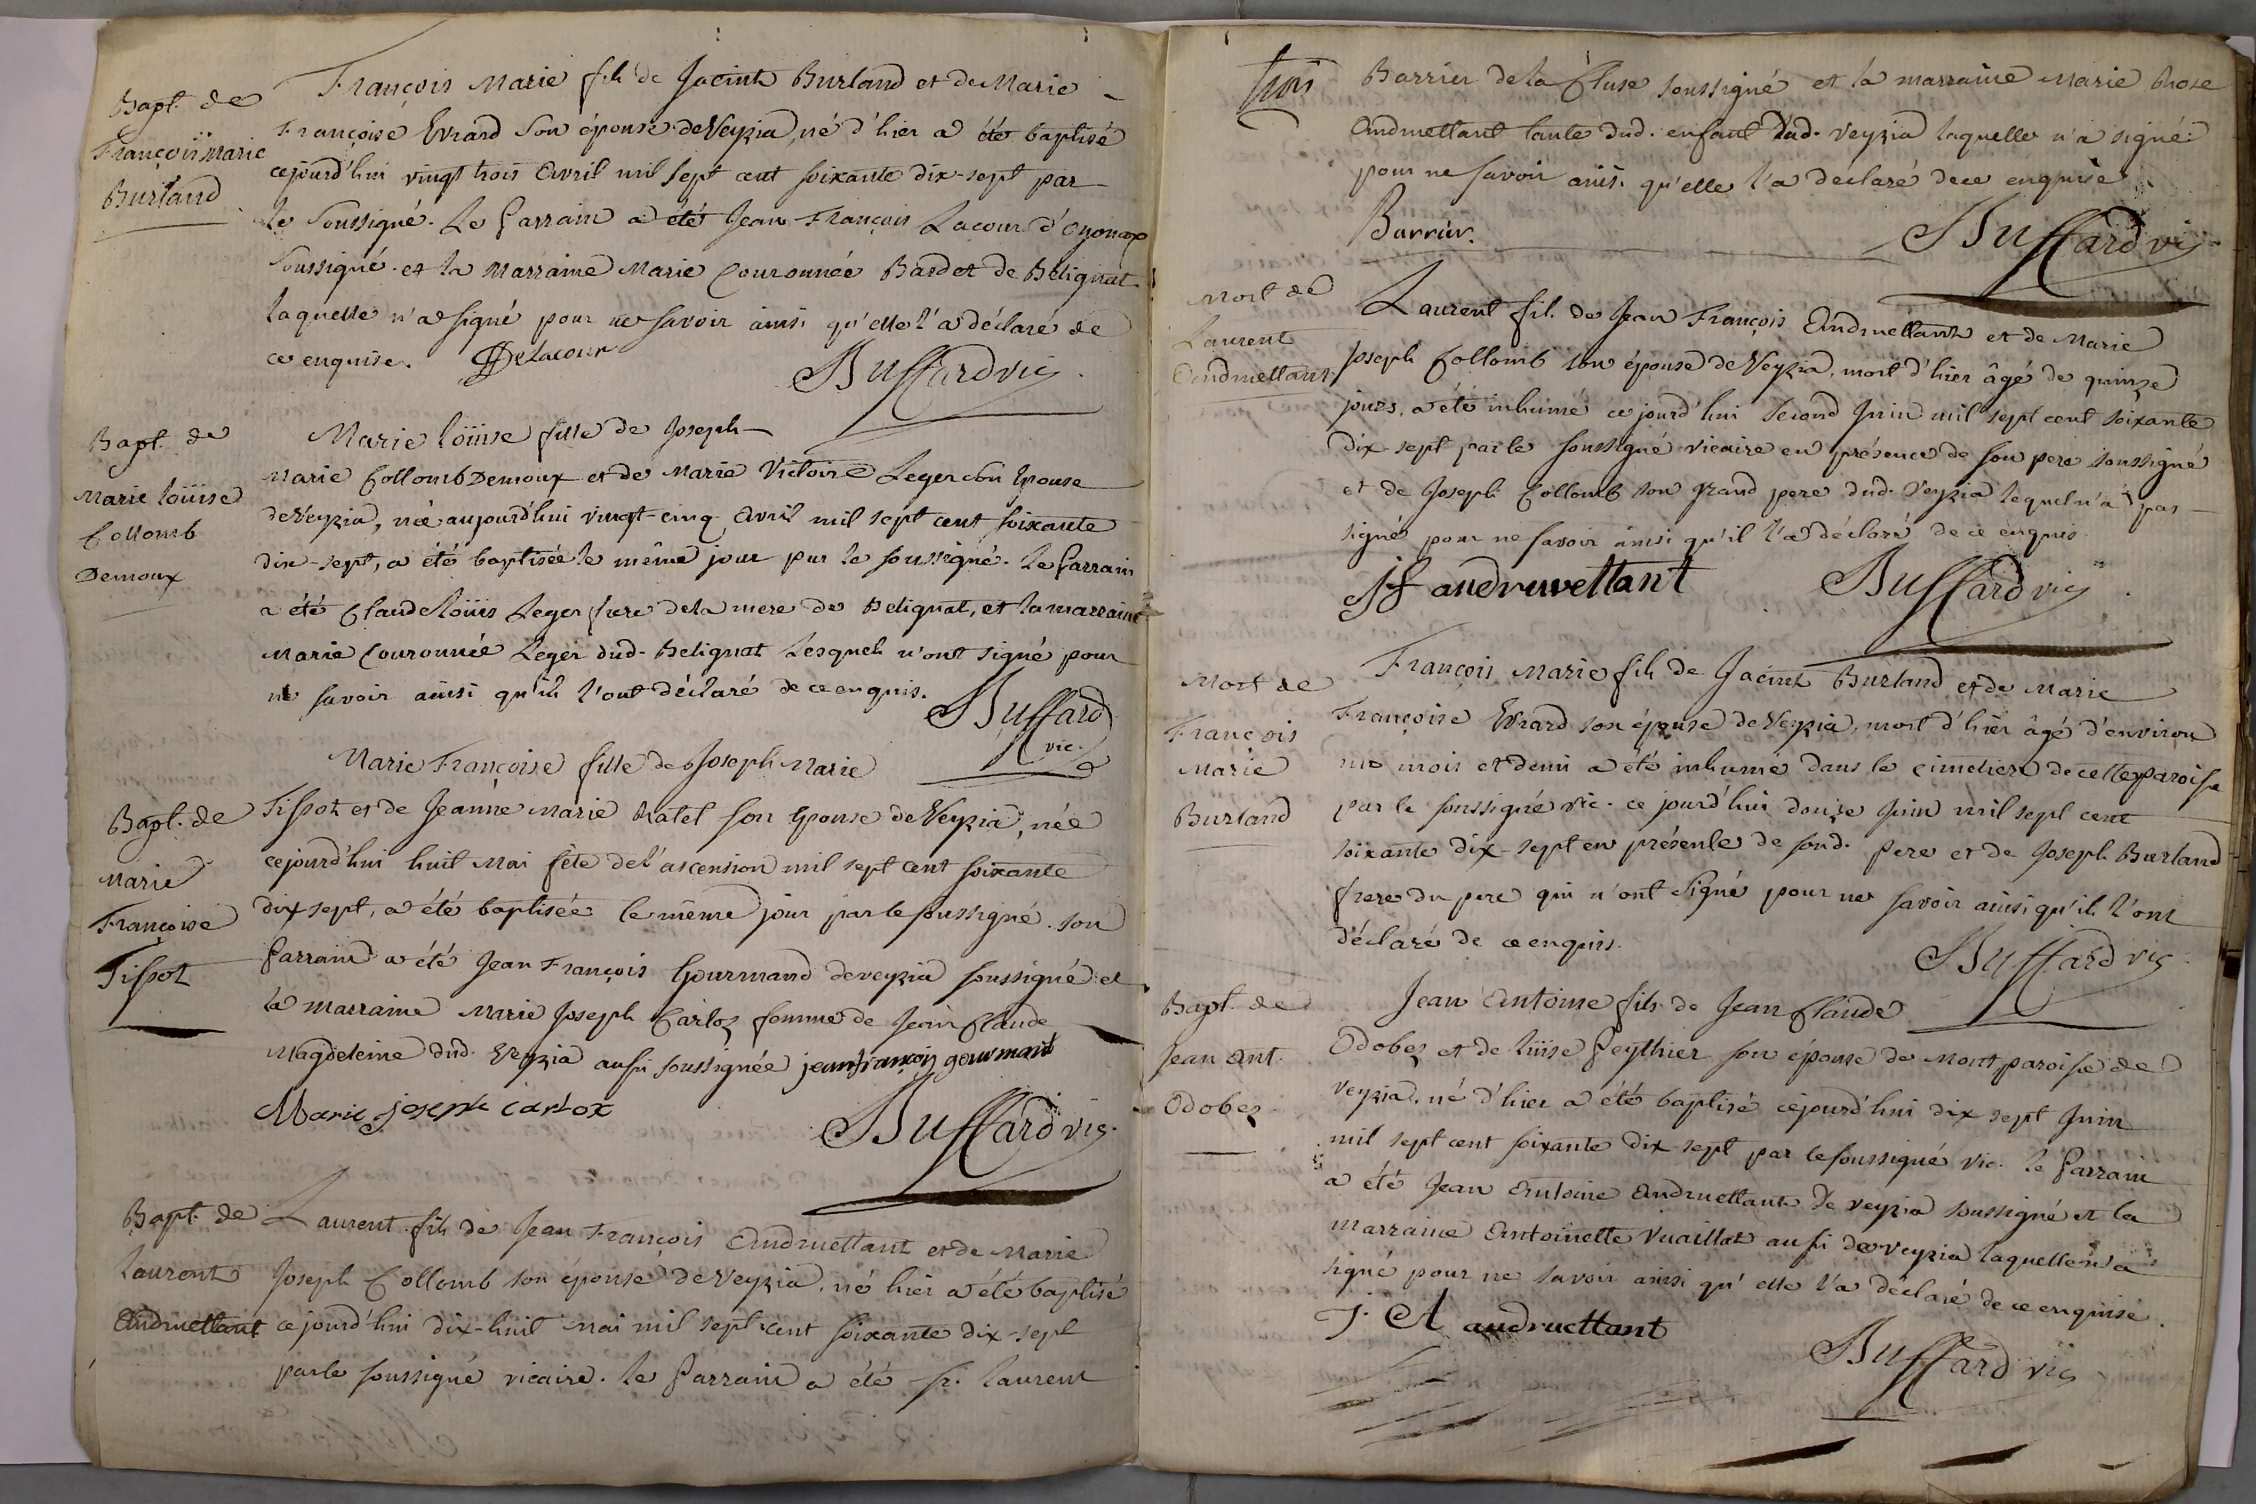 Bapt. de
François Marie
Burland
François Marie fils de Jacinte Burland et de Marie
Françoise Evrard son épouse de Veyzia, né d'hier a été baptisé
cejourd'hui vingt trois Avril mil sept cent soixante dix-sept par
le soussigné. Le Parrain a été Jean François Lacour d'Oyonax
soussigné et la Marraine Marie Couronnée Bardet de Belignat
laquelle n'a signé pour ne savoir ainsi qu'elle l'a déclaré de
ce enquise. Delacour
Buffard vic
Bapt. de
Marie loüise
Collomb
Demoux
Marie loüise fille de Joseph
Marie Collomb Demoux et de Marie Victoire Leger son Epouse
de Veyzia, née aujourd'hui vingt-cinq Avril mil sept cent soixante
dix-sept, a été baptisée le même jour par le soussigné. Le Parrain
a été Claude Loüis Leger frere de la mere de Belignat, et la marraine
Marie Couronnée Leger dud. Belignat Lesquels n'ont signé pour
ne savoir ainsi qu'ils l'ont déclaré de ce enquis.
Buffard
vic.
Bapt. de
Marie
Françoise
Tissot
Marie Françoise fille de Joseph Marie
Tissot et de Jeanne Marie Ratet son Epouse de Veyzia, née
cejourd'hui huit Mai fête de l'ascension mil sept cent soixante
dix sept, a été baptisée le même jour par le soussigné. son
Parrain a été Jean François Gourmand de veyzia soussigné et
la marraine Marie Joseph Carloz femme de Jean Claude
Magdeleine dud. Veyzia aussi soussignée jean françois gourmand
Marie joseph carlox
Buffard vic.
Bapt. de
Laurent
Andruettant
Laurent fils de Jean François Andruettant et de Marie
Joseph Collomb son épouse de Veyzia, né hier a été baptisé
cejourd'hui dix-huit Mai mil sept cent soixante dix-sept
par le soussigné vicaire. Le Parrain a été sr. Laurent
trois
Barrier de la Cluse soussigné et la marraine Marie Rose
Andruettant tante dud. enfant dud. Veyzia laquelle n'a signé
pour ne savoir ainsi qu'elle l'a déclaré de ce enquise
Barrier.
Buffard vic
Mort de
Laurent
Andruettant
Laurent fils de Jean François Andruettant et de Marie
Joseph Collomb son épouse de Veyzia, mort d'hier âgé de quinze
jours, a été inhumé ce jourd'hui second Juin mil sept cent soixante
dix sept par le soussigné vicaire en présence de son pere soussigné
et de Joseph Collomb son grand pere dud. Veyzia lequel n'a pas
signé pour ne savoir ainsi qu'il l'a déclaré de ce enquis.
Jf andruvettant
Buffard vic
Mort de
François
Marie
Burland
François Marie fils de Jacinte Burland et de Marie
Françoise Evrard son épouse de Veyzia, mort d'hier âgé d'environ
un mois et demi a été inhumé dans le cimetiere de cette paroisse
par le soussigné vic. ce jourd'hui douze Juin mil sept cent
soixante dix-sept en présence de sond. Pere et de Joseph Burland
frere du pere qui n'ont signé pour ne savoir ainsi qu'ils l'ont
déclaré de ce enquis.
Buffard vic
Bapt. de
Jean Ant.
Odobez
Jean Antoine fils de Jean Claude
Odobez et de Loüise Peythier son épouse de Mont paroisse de
Veyzia, né d'hier a été baptisé cejourd'hui dix sept Juin
mil sept cent soixante dix sept par le soussigné vic. le Parrain
a été Jean Antoine Andruettant de veyzia soussigné et la
marraine Antoinette Vuaillat aussi de veyzia laquelle n'a
signé pour ne savoir ainsi qu'elle l'a déclaré de ce enquise.
J. A andruettant
Buffard vic